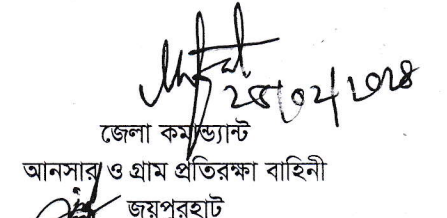 ২৫/০২/২০২৪
জেলা কমান্ড্যান্ট
আনসার ও গ্রাম প্রতিরক্ষা বাহিনী
জয়পুরহাট